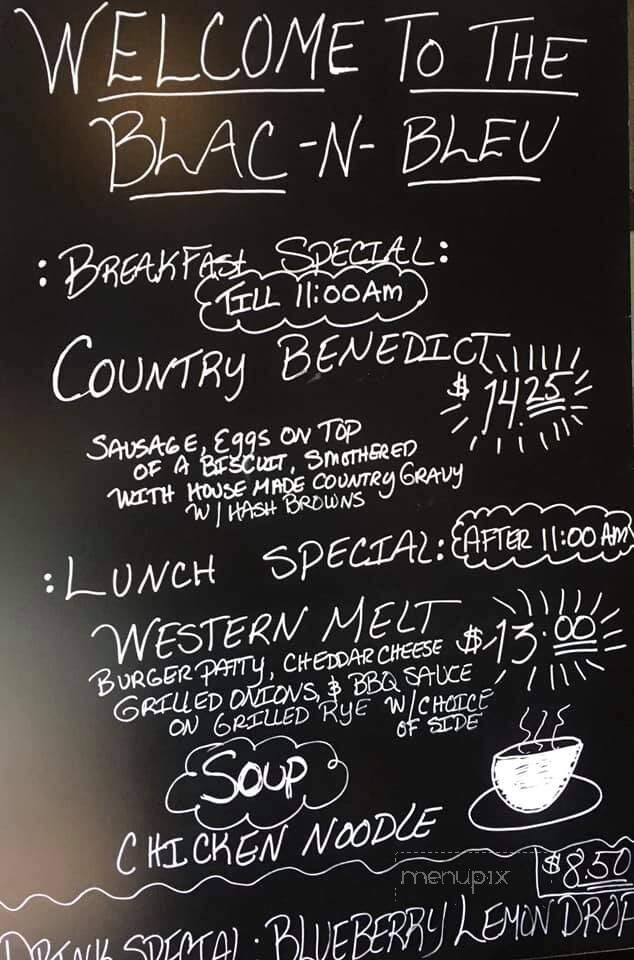 WELCOME TO THE
BLAC-N-BLEU
:BREAKFAST SPECIAL:
TILL 11:00AM
COUNTRY BENEDICT
$14.25
SAUSAGE, EGGS ON TOP
OF A BISCUIT, SMOTHERED
WITH HOUSE MADE COUNTRY GRAVY
W/ HASH BROWNS
:LUNCH SPECIAL: AFTER 11:00 AM
WESTERN MELT
$13.00
BURGER PATTY, CHEDDAR CHEESE
GRILLED ONIONS, & BBQ SAUCE
ON GRILLED RYE W/ CHOICE
OF SIDE
SOUP
CHICKEN NOODLE
menupix
$8.50
DRINK SPECIAL: BLUEBERRY LEMON DROP